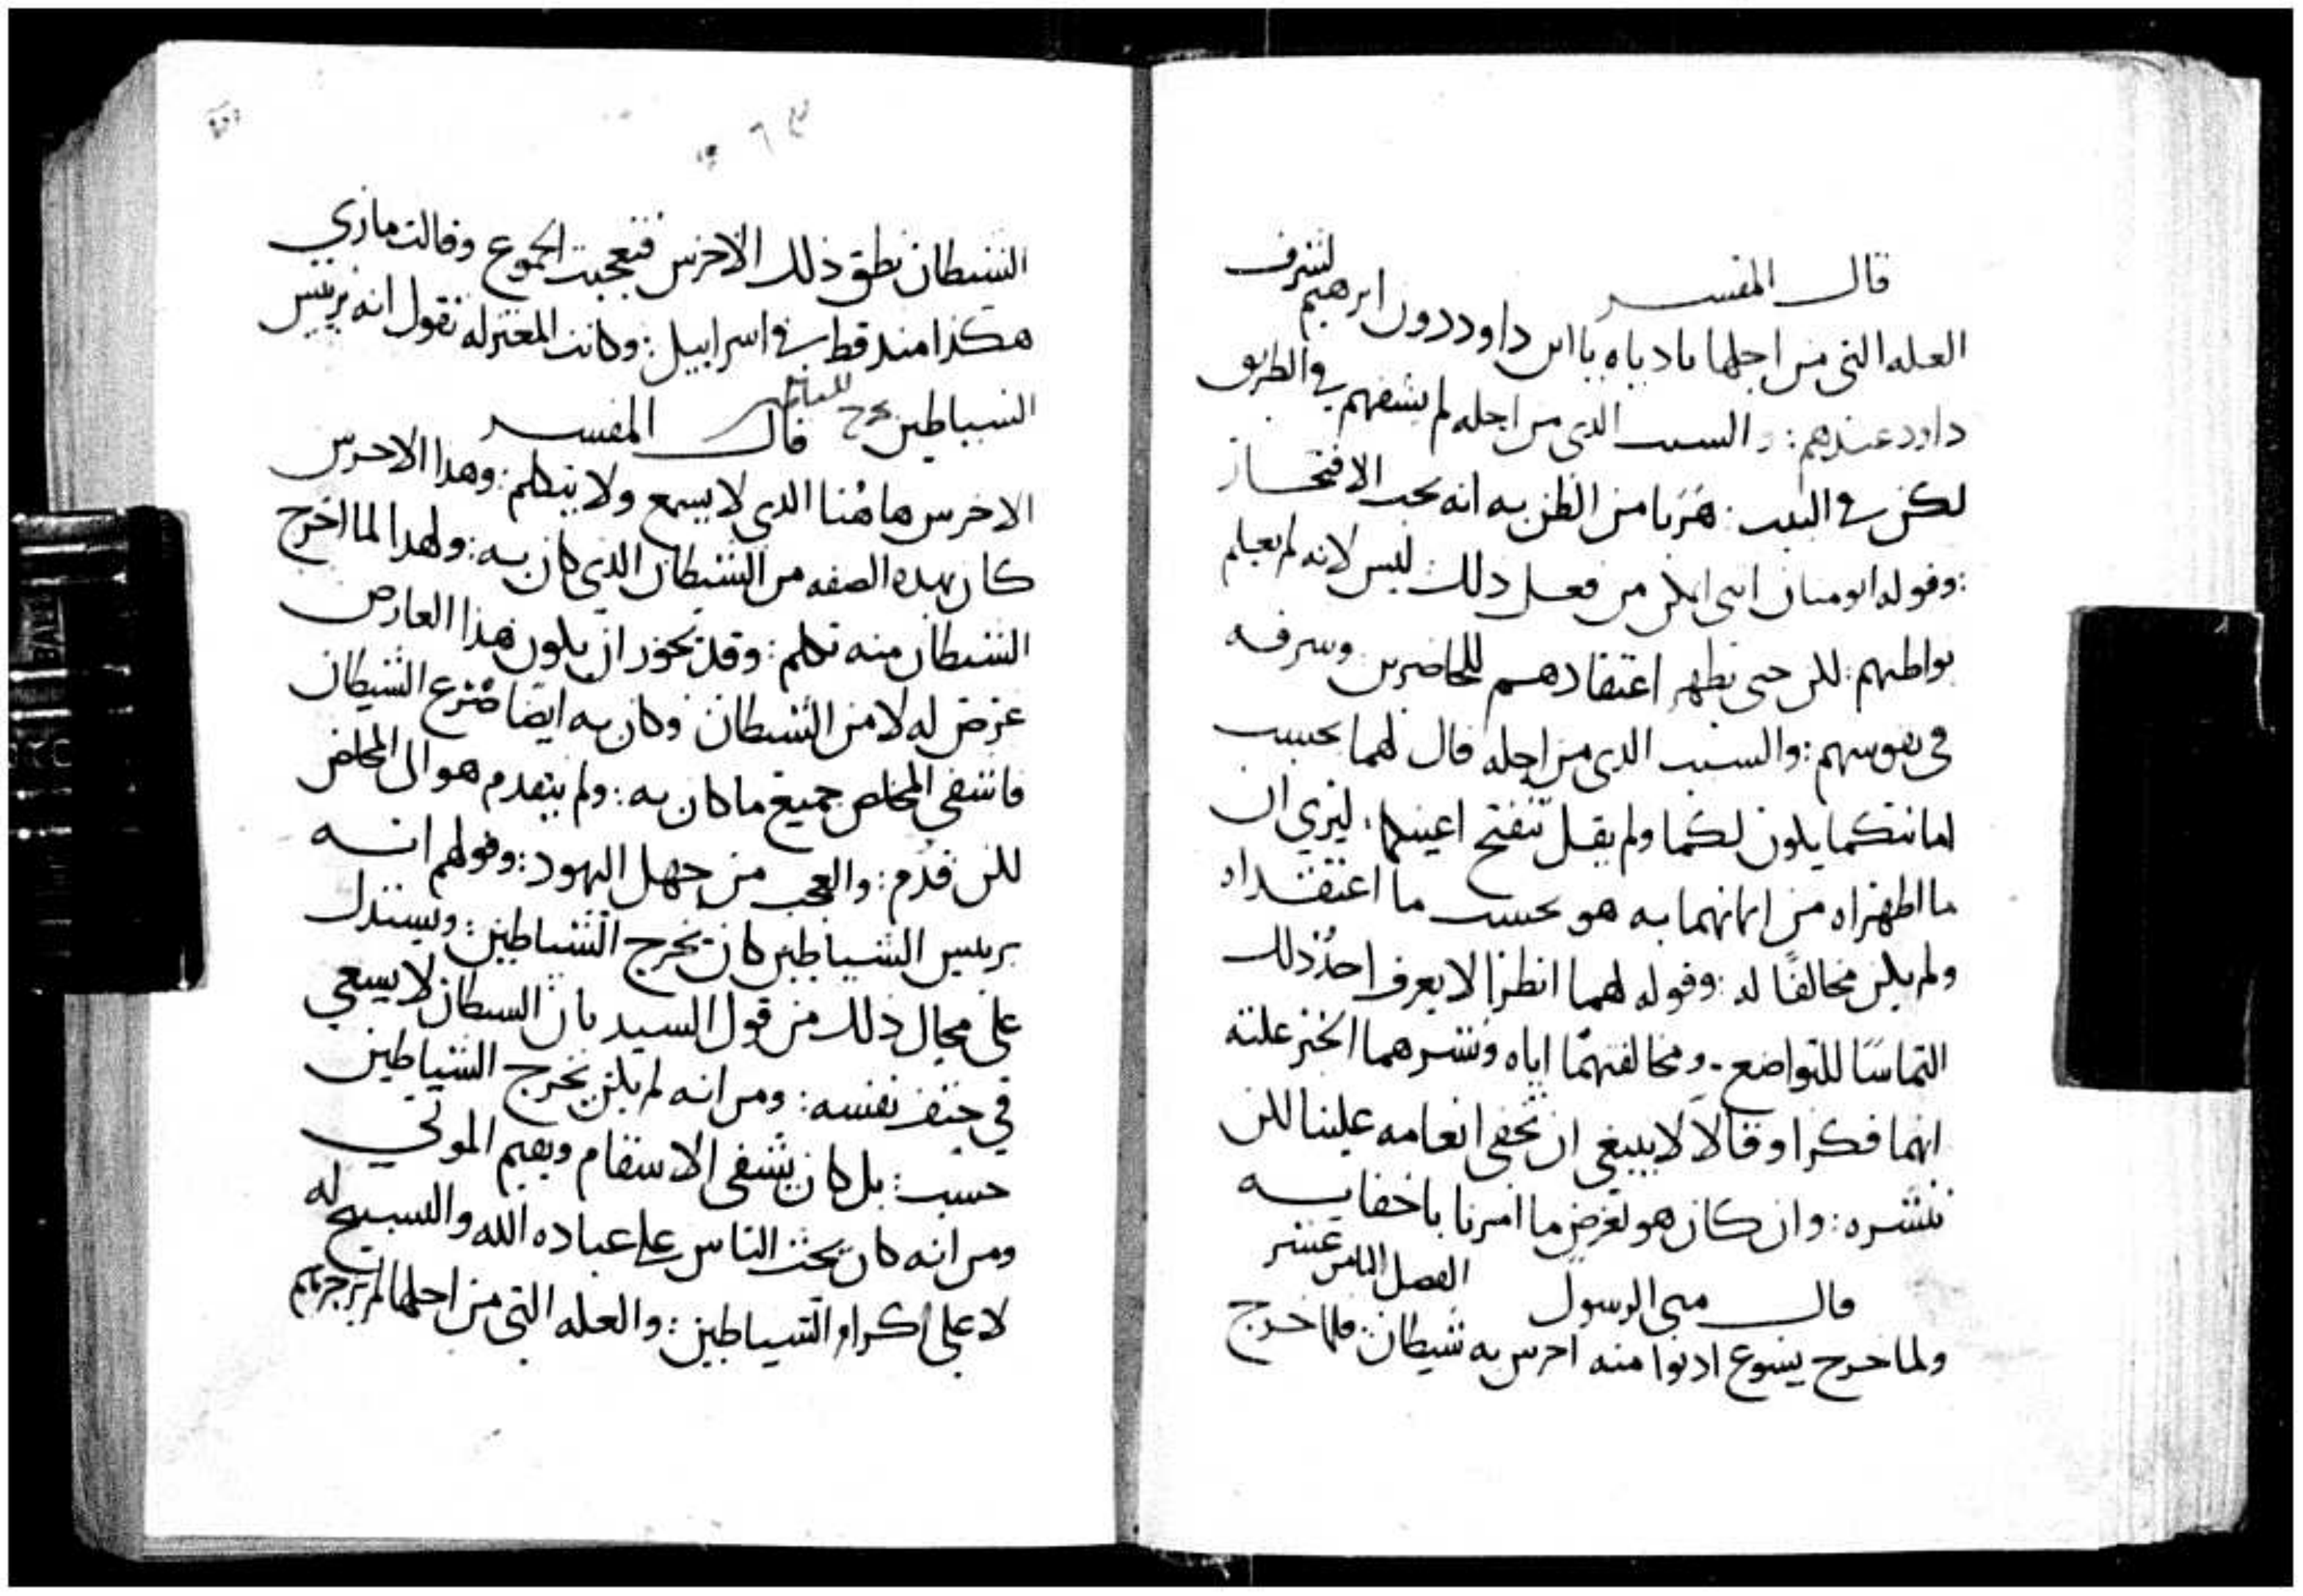 قال المفسر
العله التى من اجلها نادياه يا ابن داود دون ابرهيم لشرف
داود عندهم : والسبب الدى من اجله لم يشفهم في الطريق
لكن في البيت : هربا من الظن به انه يحب الافتخار
: وقوله اتومنان اننى امكن من فعل دلك ليس لانه لم يعلم
بواطنهم : لكن حتى يظهر اعتقادهم للحاضرين وسرفه
في نفوسهم : والسبب الدى من اجله قال لهما بحسب
امانتكما يكون لكما ولم يقل تنفتح اعينكما . ليري ان
ما اظهراه من ايمانهما به هو بحسب ما اعتقداه
ولم يكن مخالفًا له : وقوله لهما انظرا لا يعرف احدٌ ذلك
التماسًا للتواضع . ومخالفتهما اياه ونشرهما الخبر علته
انهما فكرا وقالا لا ينبغي ان نخفي انعامه علينا لكن
ننشره : وان كان هو لغرض ما امرنا باخفايه
قال متى الرسول الفصل الثامن عشر
ولما خرج يسوع ادنوا منه اخرس به شيطان فلما خرج
الشيطان نطق ذلك الاخرس فتعجبت الجموع وقالت ما رُي
هكذا مند قط في اسراييل : وكانت المعتزله تقول انه بريس
الشياطين يخرج الشياطين قال المفسر
الاخرس هاهُنا الدي لا يسمع ولا يتكلم : وهدا الاخرس
كان بهده الصفه من الشيطان الذي كان به : ولهدا لما اخرج
الشيطان منه تكلم : وقد يجوز ان يكون هذا العارض
عرض له لا من الشيطان وكان به ايضًا صرع الشيطان
فاشفى المخلص جميع ما كان به : ولم يتقدم هو الى المخلص
لكن قُدّم : والعجب من جهل اليهود : وقولهم انه
بريس الشياطين كان يخرج الشياطين : ويستدل
على محال ذلك من قول السيد بان الشيطان لا يسعي
في حتف نفسه : ومن انه لم يكن يخرج الشياطين
حسب : بل كان يشفى الاسقام ويقيم الموتي
ومن انه كان يحث الناس على عباده الله والتسبيح له
لا على اكرام الشياطين : والعله التى من اجلها لم يزجرهم